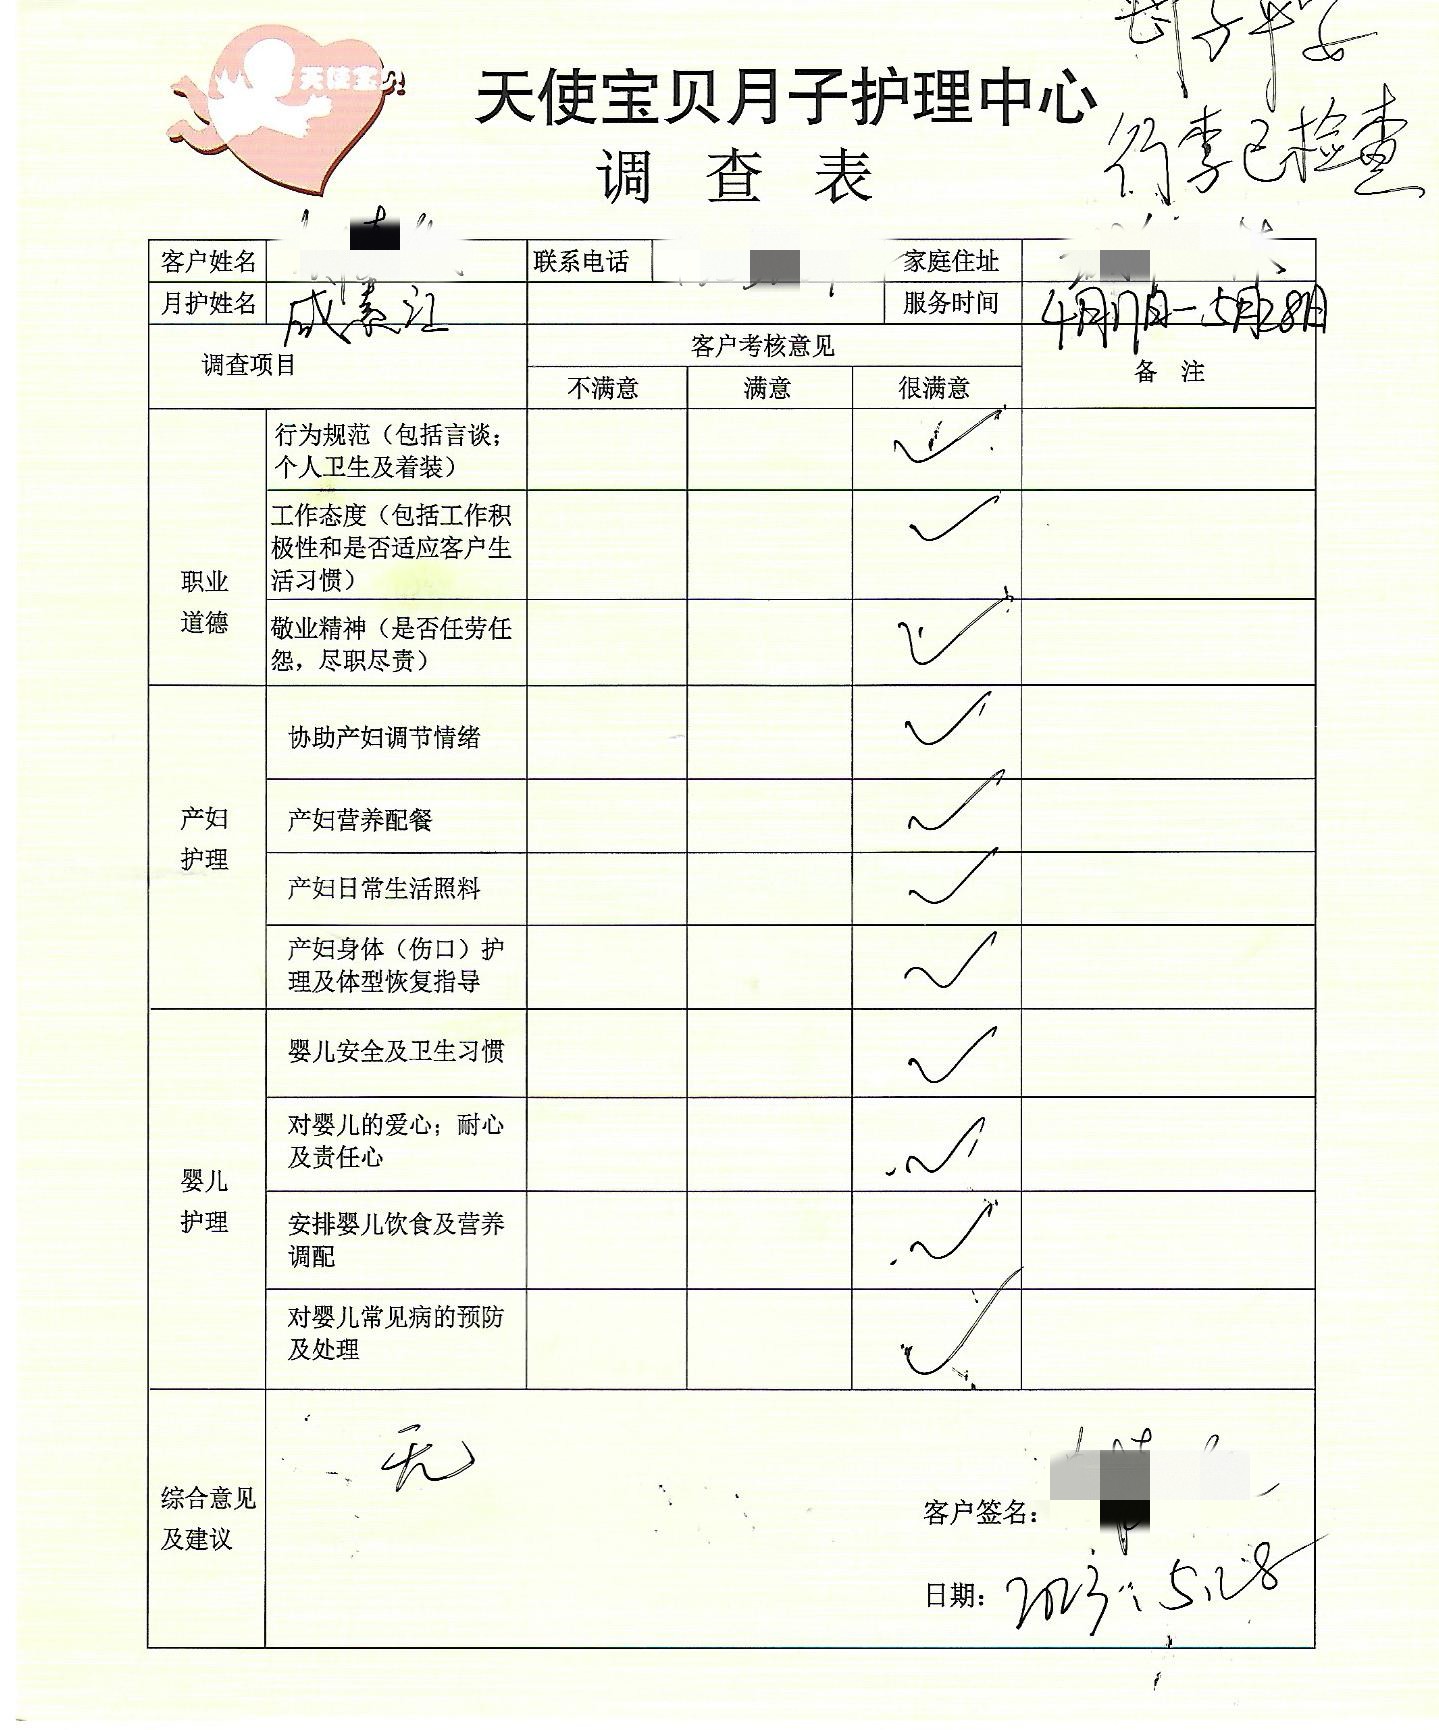 天使宝贝
天使宝贝月子护理中心
调 查 表
行李已检查
客户姓名
联系电话
家庭住址
月护姓名
服务时间 4月17日-5月28日
调查项目
客户考核意见
备 注
不满意 满意 很满意
职业
道德
行为规范（包括言谈；
个人卫生及着装）
工作态度（包括工作积
极性和是否适应客户生
活习惯）
敬业精神（是否任劳任
怨，尽职尽责）
产妇
护理
协助产妇调节情绪
产妇营养配餐
产妇日常生活照料
产妇身体（伤口）护
理及体型恢复指导
婴儿
护理
婴儿安全及卫生习惯
对婴儿的爱心；耐心
及责任心
安排婴儿饮食及营养
调配
对婴儿常见病的预防
及处理
综合意见
及建议
无
客户签名：
日期： 2023.5.28